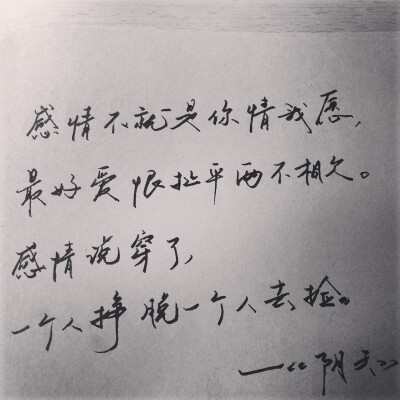 感情不就是你情我愿，
最好爱恨扯平两不相欠。
感情说穿了，
一个人挣脱一个人去捡。
——《阴天》